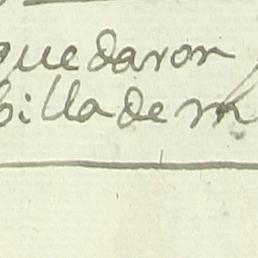 quedaron
billa de m